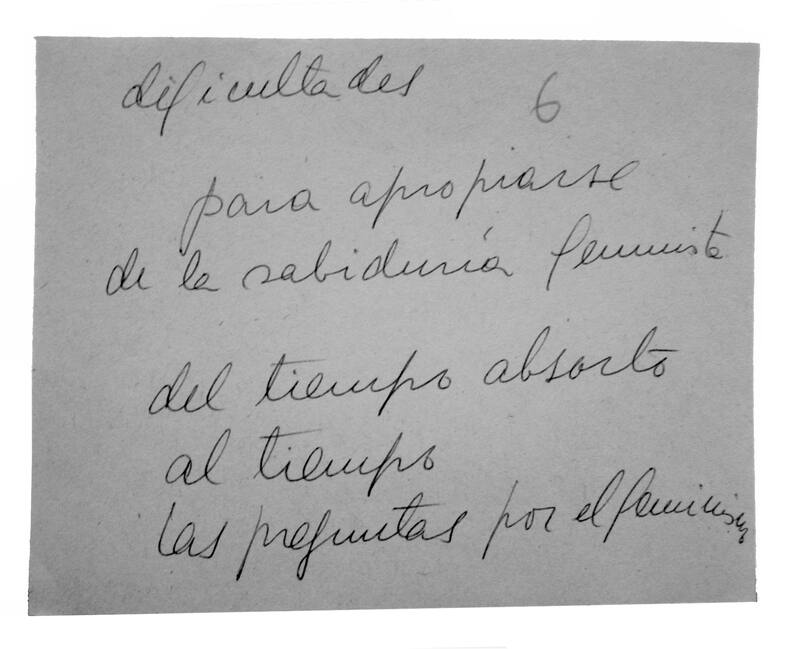 dificultades
6
para apropiarse
de la sabiduría feminista
del tiempo absorto
al tiempo
las preguntas por el feminismo